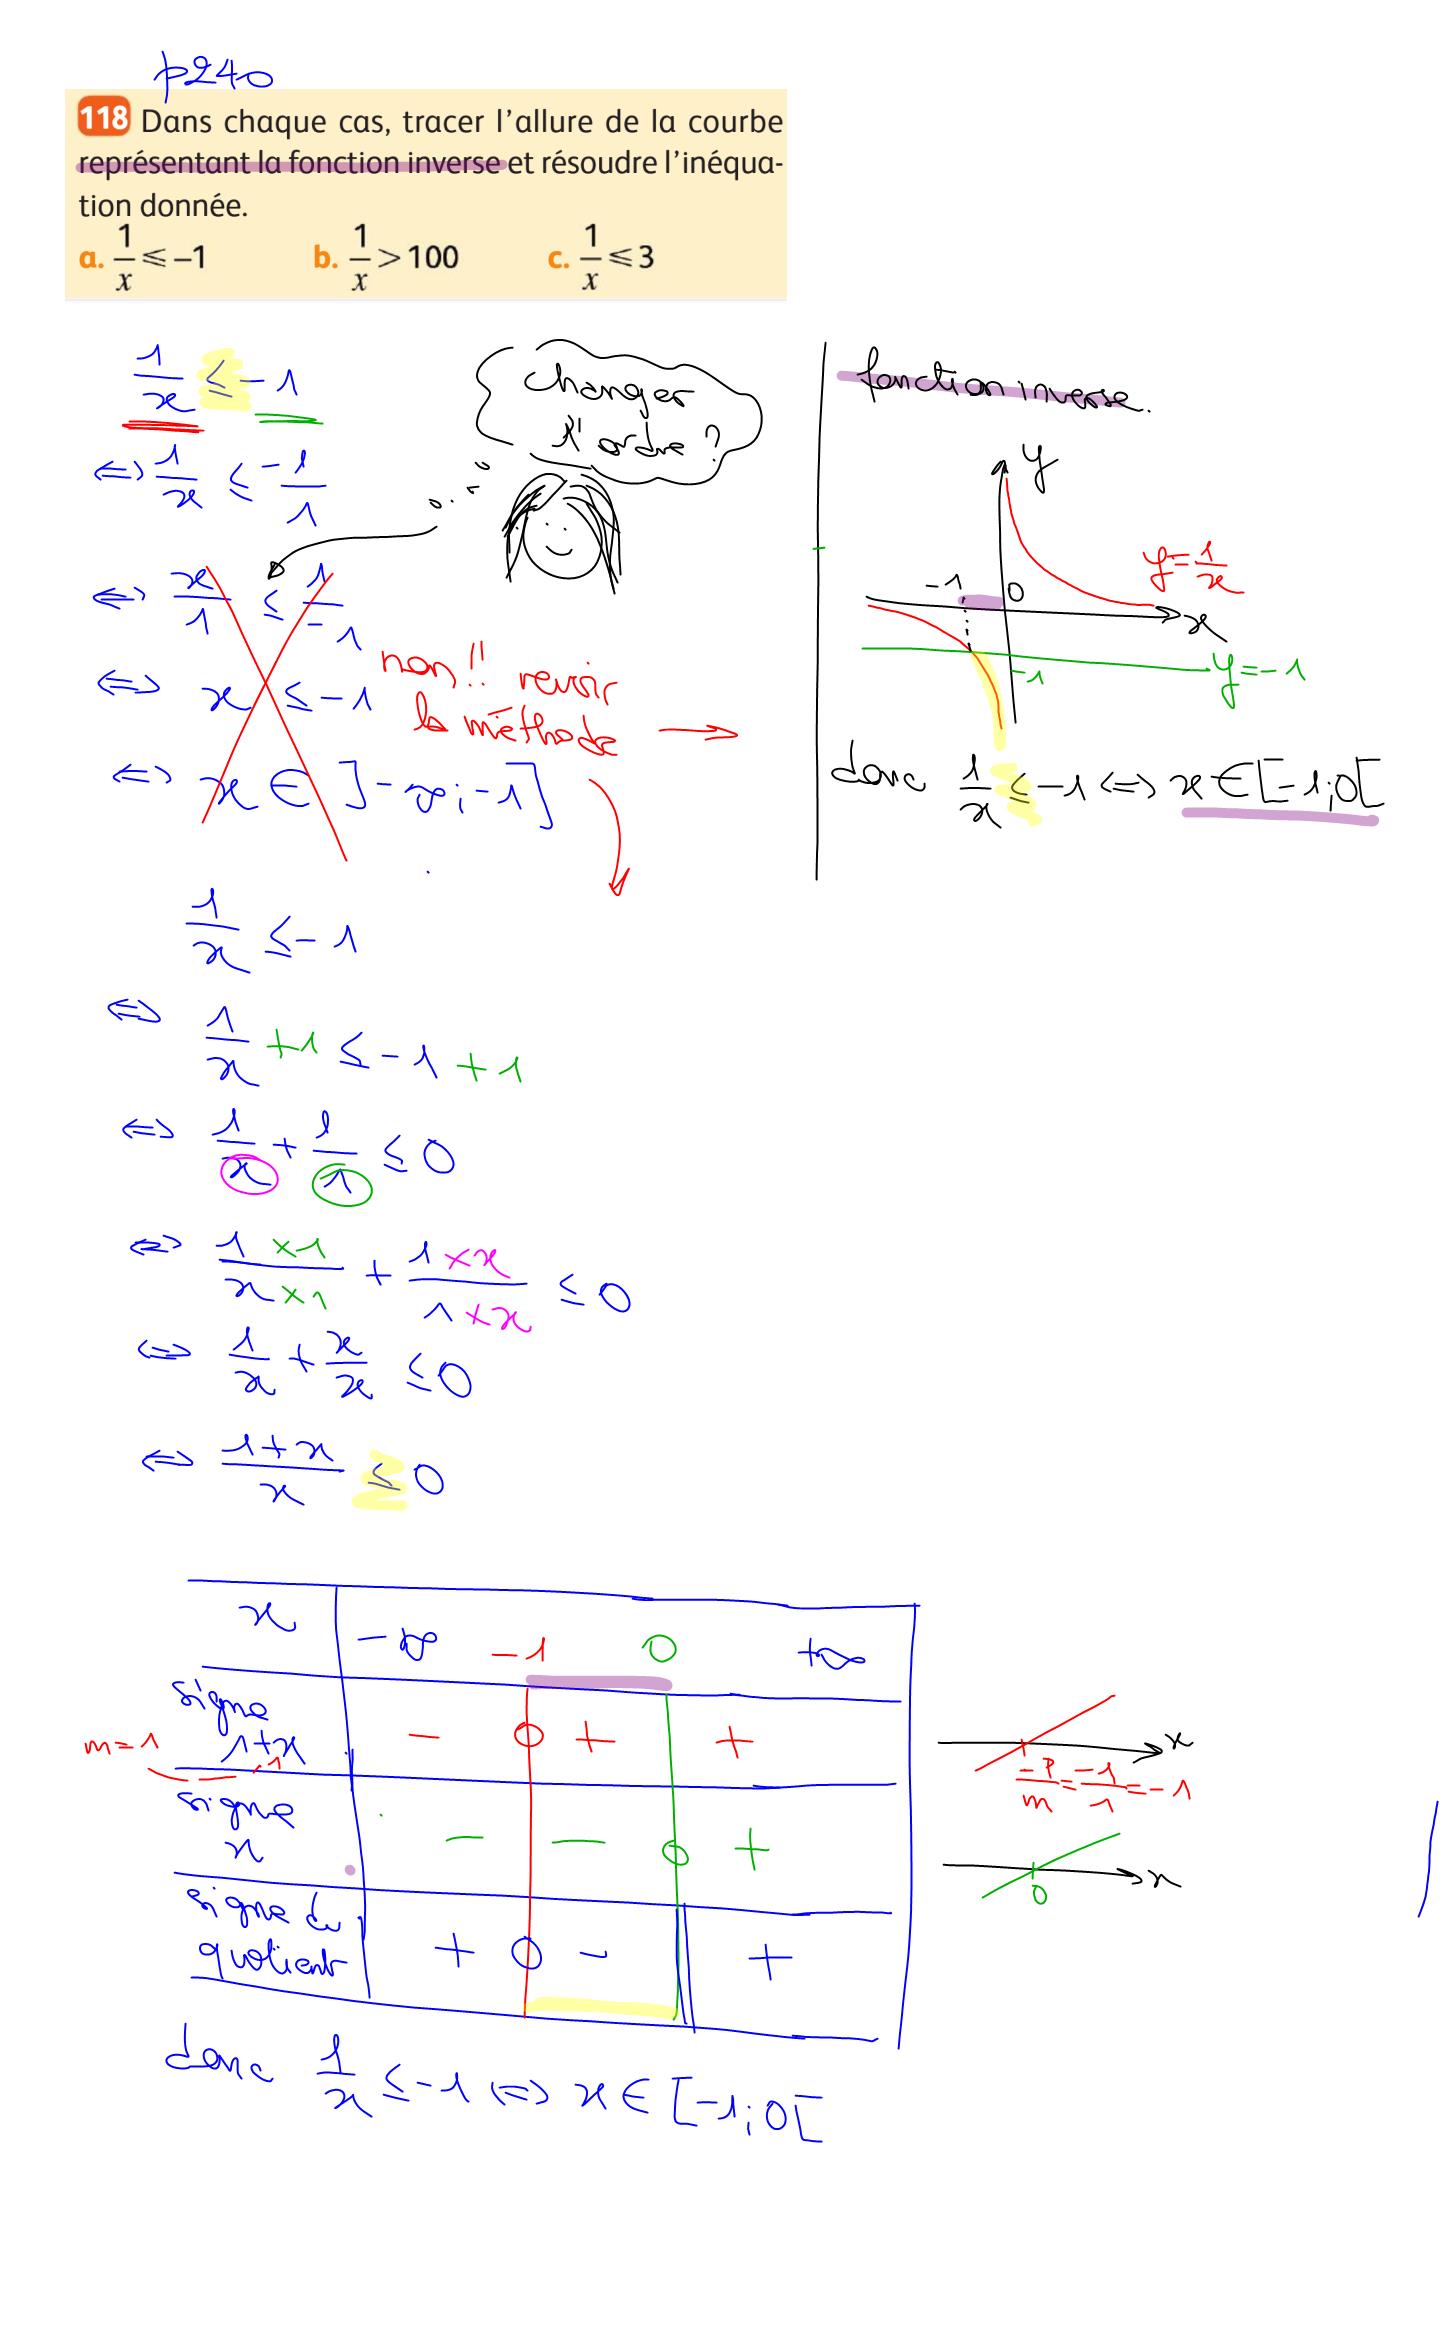 p240
118 Dans chaque cas, tracer l'allure de la courbe
représentant la fonction inverse et résoudre l'inéqua-
tion donnée.
a. 1/x ⩽ –1 b. 1/x > 100 c. 1/x ⩽ 3
1/x ≤ -1
⇔ 1/x ≤ -1/1
⇔ x/1 ≤ 1/-1
⇔ x ≤ -1
⇔ x ∈ ]-∞;-1]
changer
l'ordre ?
non!! revoir
la méthode
fonction inverse.
y
y=1/x
-1 0
x
-1
y=-1
donc 1/x ≤ -1 ⇔ x∈[-1;0[
1/x ≤ -1
⇔ 1/x +1 ≤ -1 +1
⇔ 1/x + 1/1 ≤ 0
⇔ 1×1/x×1 + 1×x/1×x ≤ 0
⇔ 1/x + x/x ≤ 0
⇔ 1+x/x ≤ 0
x -∞ -1 0 +∞
signe
1+x - 0 + +
m=1 1
x
-p/m = -1/1 = -1
signe
x - - 0 +
x
0
signe du
quotient + 0 - +
donc 1/x ≤ -1 ⇔ x ∈ [-1;0[